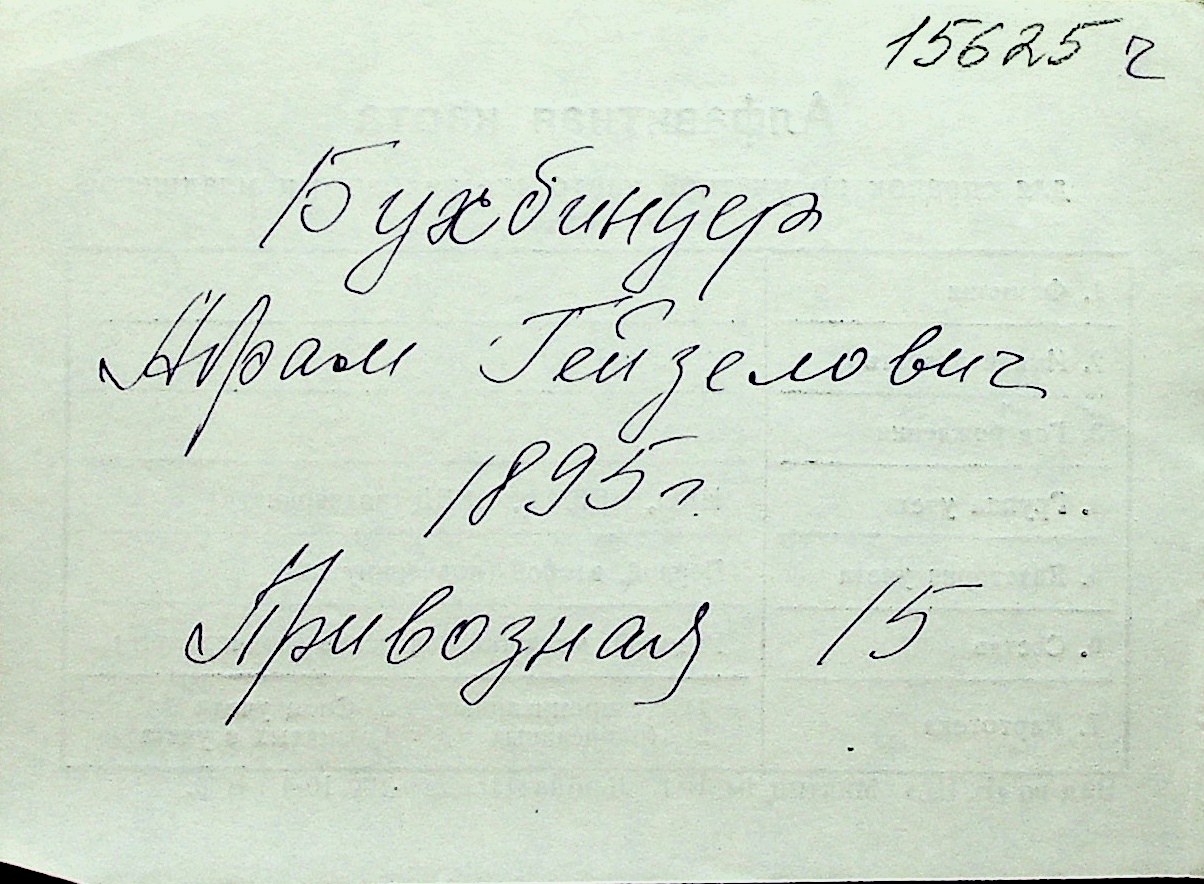 15625 г
Бухбиндер
Абрам Гейзелович
1895 г.
Привозная 15